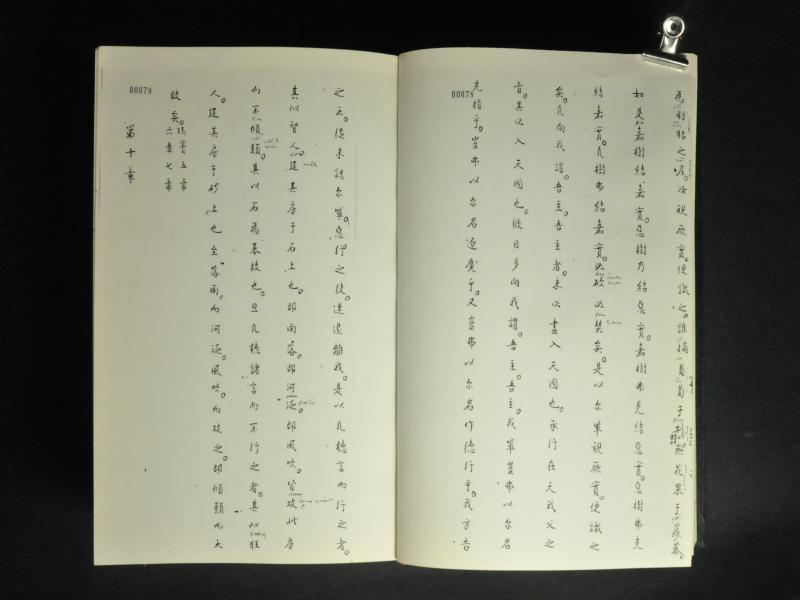 為豺狼之
視厥實。便識之。誰摘葡萄于荊。無花果于
如是嘉樹結嘉實。惡樹乃結惡實。嘉樹弗克結惡實。惡樹弗克
結嘉實。凡樹弗結嘉實。必砍必焚矣。是以尔軰視厥實。便識之
矣。凡向我謂。吾主。吾主者。未必盡入天國也。承行在天我父之
旨。其以入天國也。彼日多向我謂。吾主。吾主。我軰豈弗以尔名
先指乎。豈弗以尔名逐魔乎。又豈弗以尔名作德行乎。我方告
00078
之云。從未認尔軰。惡行之徒。速退離我。是以凡聽言而行之者。
其似智人。建其房于石上也。即雨落。即河
即風吹。皆攻此房
而不傾頹。其以石為基故也。且凡聽諸言而不行之者。其似狂
人。建其房于砂上也。至落雨。而河
風吹。而攻之。即傾頹而大
敗矣。
瑪竇五章
六章七章
第十章
00079